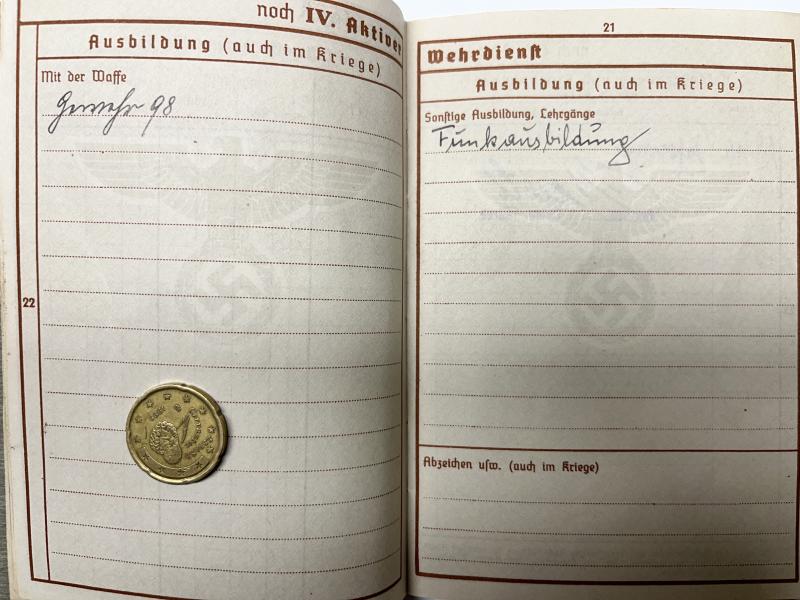 noch IV. Aktiver
Ausbildung (auch im Kriege)
Mit der Waffe
Gewehr 98
22
21
Wehrdienst
Ausbildung (auch im Kriege)
Sonstige Ausbildung, Lehrgänge
Funkausbildung
Abzeichen usw. (auch im Kriege)